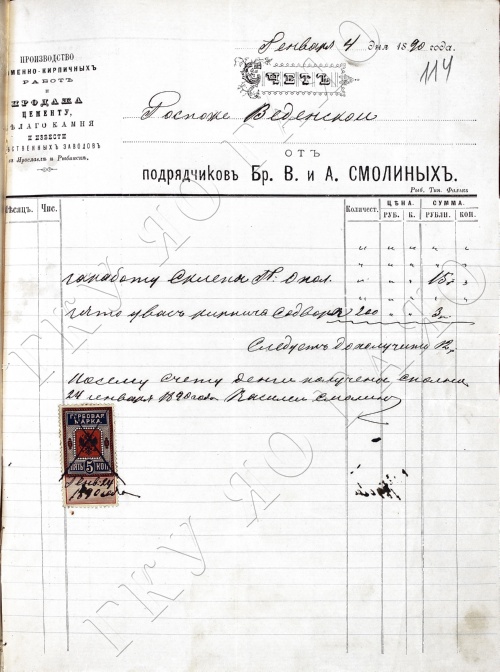 Генваря 4 дня 1890 года.
114
ПРОИЗВОДСТВО
МЕННО-КИРПИЧНЫХЪ
РАБОТЪ
И
ПРОДАЖА
ЦЕМЕНТУ,
ѢЛАГО КАМНЯ
И ИЗВЕСТИ
БСТВЕННЫХЪ ЗАВОДОВЪ
Ярославлѣ и Рыбинскѣ.
СЧЕТЪ
Госпоже Веденской
ОТЪ
ПОДРЯДЧИКОВЪ Бр. В. и А. СМОЛИНЫХЪ.
Рыб. Тип. Фалькъ
Мѣсяцъ. Чис. Количест. ЦѢНА. СУММА.
РУБ. К. РУБЛИ. КОП.
заработу Склепа 15
кирпича 200 3
Следуетъ дополучить 12
Посему счету денги получены сполна
24 генваря 1890 года Василей Смолин
ГЕРБОВАЯ
МАРКА.
5
ПЯТЬ КОП
Генв. 24
1890 года
ГКУ ЯО ГАЯО
ГКУ ЯО